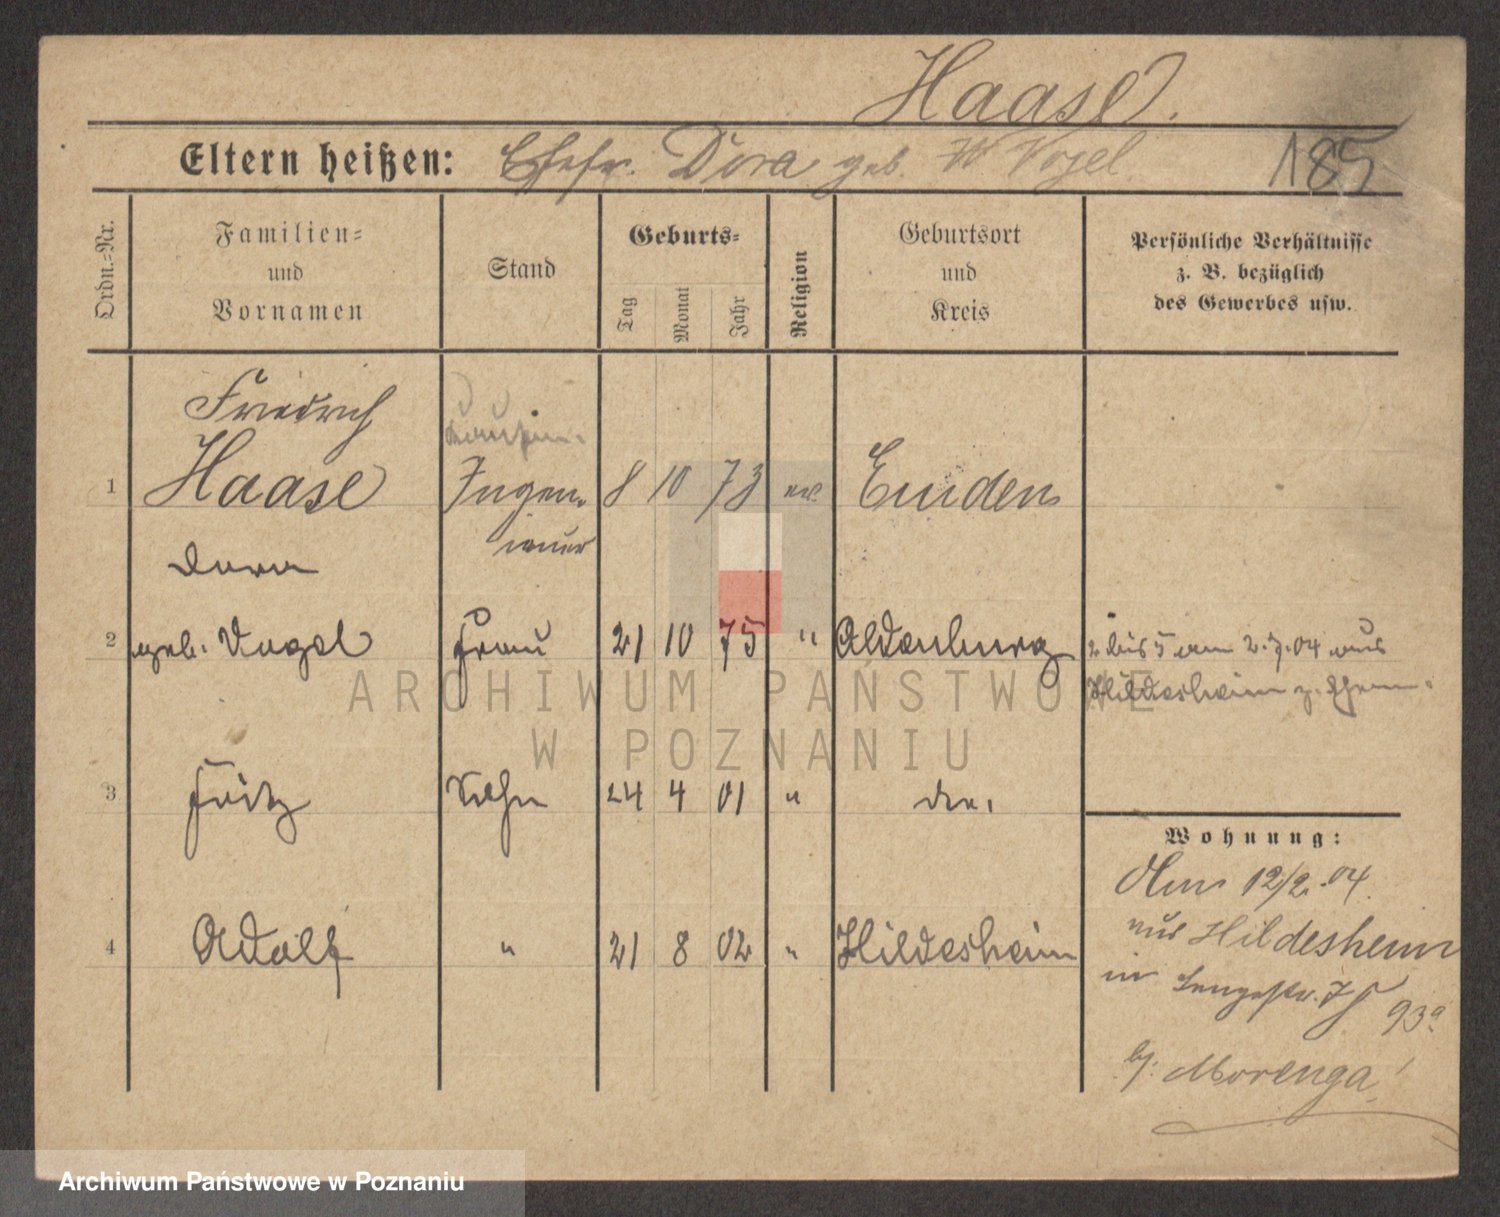 Haase.
Eltern heißen: Ehefr. Dora geb. Vogel
185
Ordn.=Nr.
Familien=
und
Vornamen
Stand
Geburts=
Tag
Monat
Jahr
Religion
Geburtsort
und
Kreis
Persönliche Verhältnisse
z. B. bezüglich
des Gewerbes usw.
Friedrich
1 Haase Ingen- 8 10 73 ev. Emden
ieur
Dora
2 geb. Vogel Frau 21 10 75 " Oldenburg 2 bis 5 am 2.7.04 aus
Hildesheim z.
3 Fritz Sohn 24 4 01 " do.
Wohnung:
Am 12/2.04
4 Adolf " 21 8 02 " Hildesheim
aus Hildesheim
in Langestr. 93a
bj. Morenga
ARCHIWUM PAŃSTWOWE
W POZNANIU
Archiwum Państwowe w Poznaniu